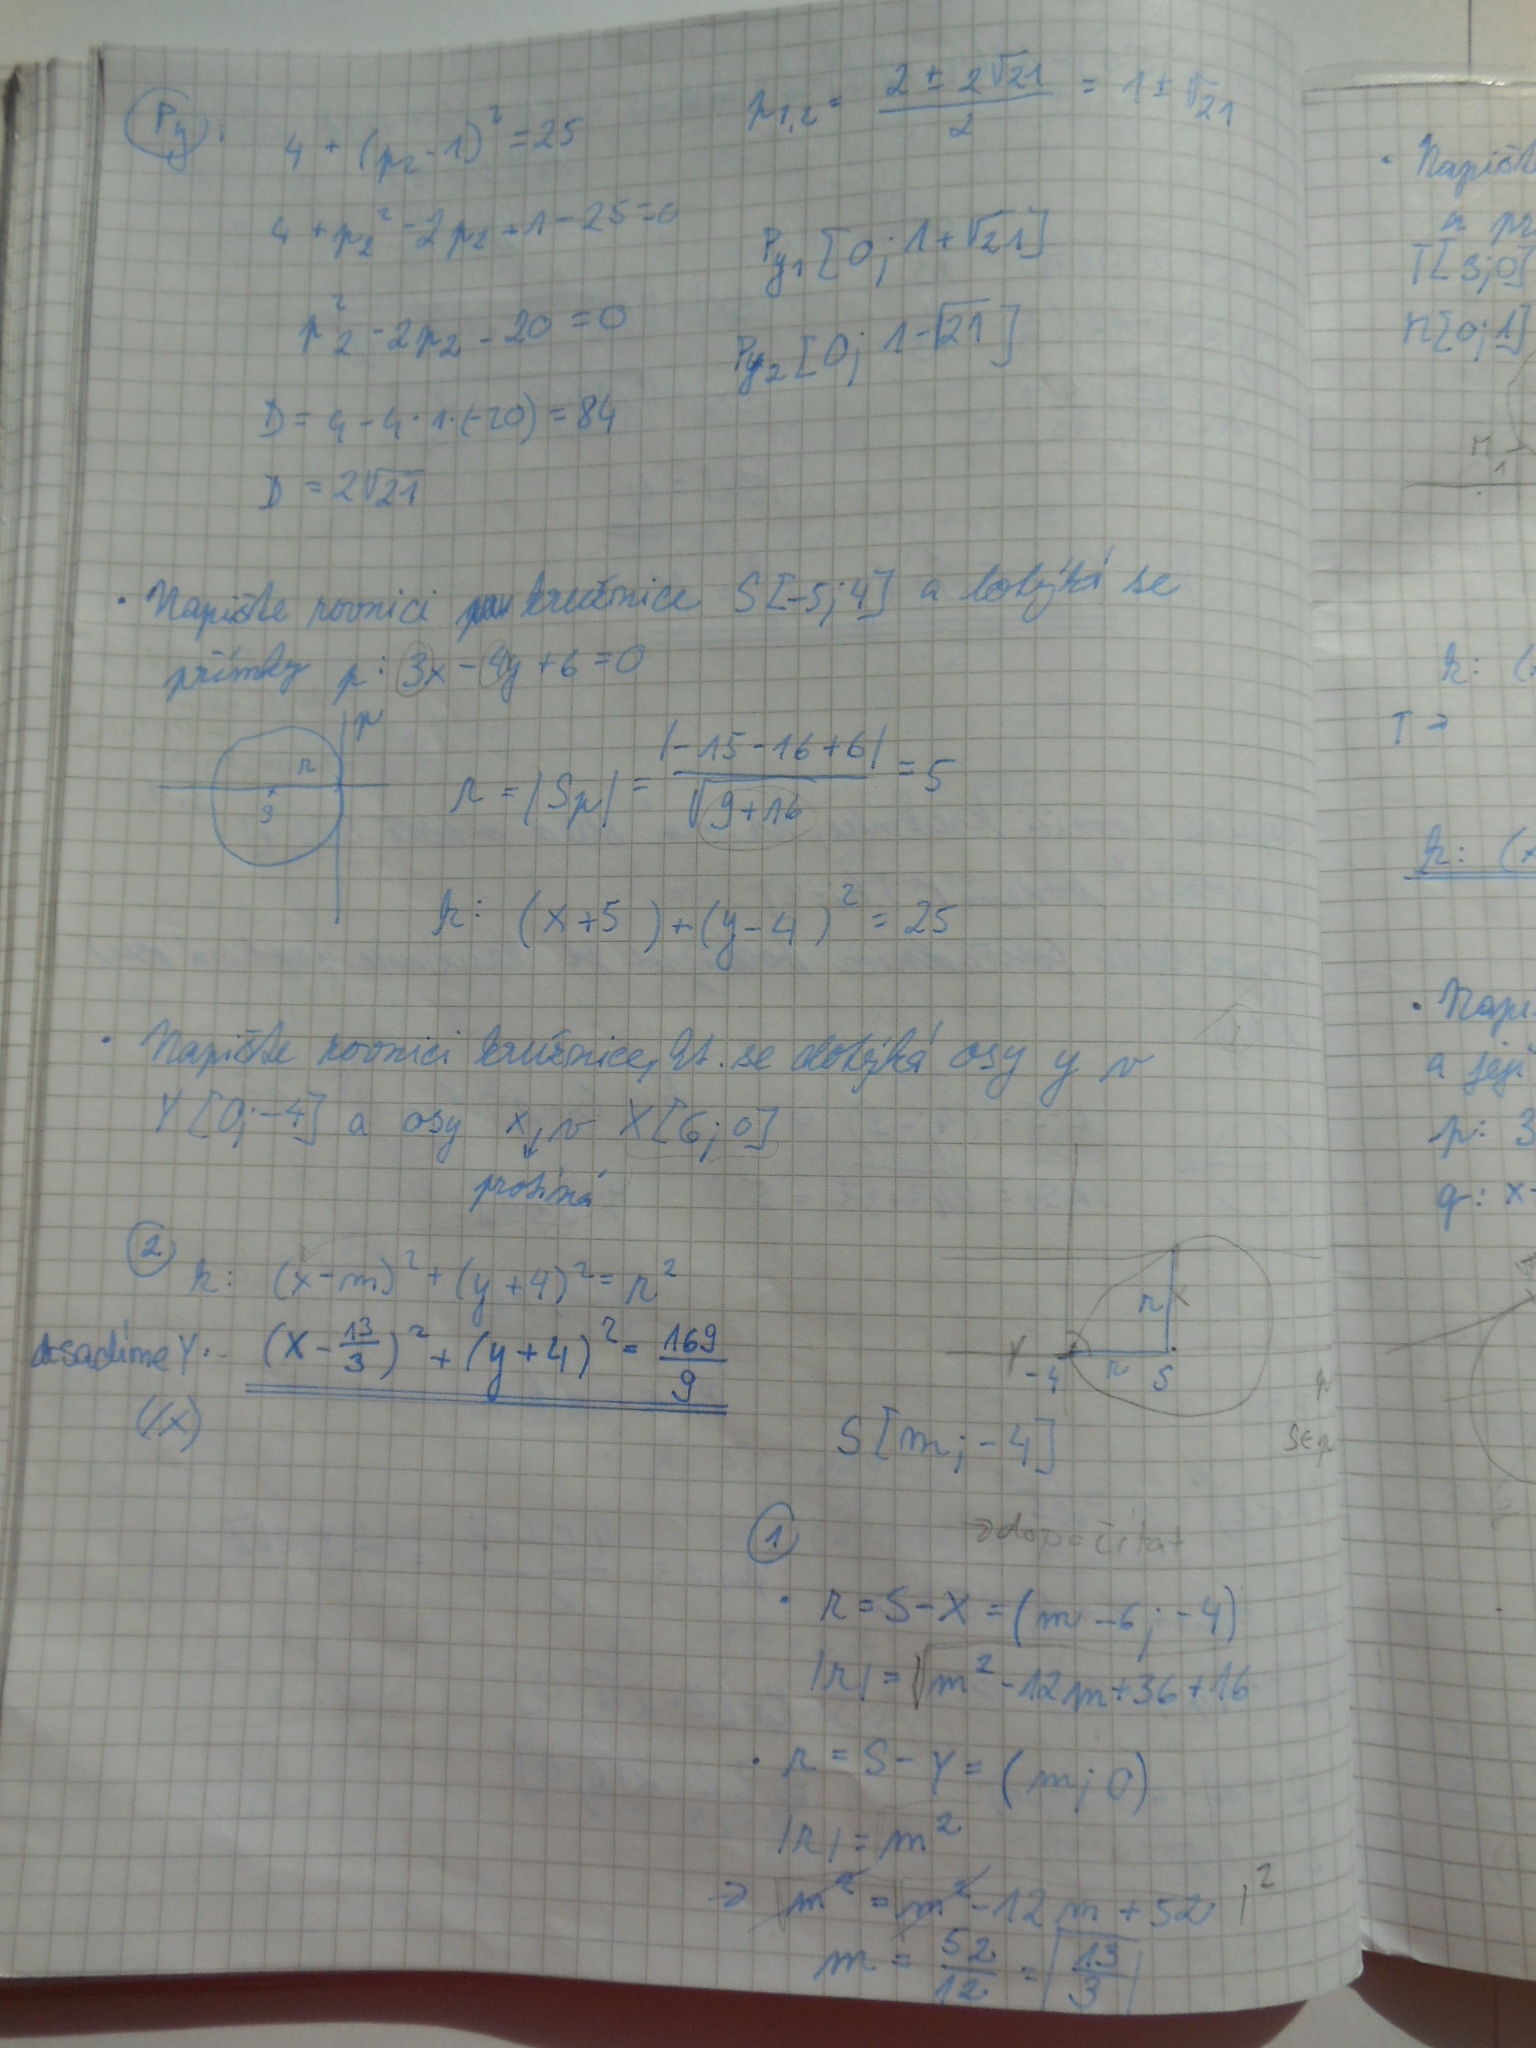 Py: 4 + (p₂ - 1)² = 25
4 + p₂² - 2p₂ + 1 - 25 = 0
p₂² - 2p₂ - 20 = 0
D = 4 - 4·1·(-20) = 84
D = 2√21
p₁,₂ = (2 ± 2√21)/2 = 1 ± √21
Py₁ [0; 1 + √21]
Py₂ [0; 1 - √21]
· Napište rovnici kružnice S[-5; 4] a dotýká se
přímky p: 3x - 4y + 6 = 0
p
r
S
r = |Sp| = |-15 - 16 + 6| / √(9 + 16) = 5
k: (x + 5 ) + (y - 4)² = 25
· Napište rovnici kružnice, kt. se dotýká osy y v
Y[0; -4] a osy x v X[6; 0]
↓
protíná
② k: (x - m)² + (y + 4)² = r²
dosadíme Y.. (x - 13/3)² + (y + 4)² = 169/9
(/X)
r
Y
-4
r
S
S[m; -4]
①
→ dopočítat
· r = S - X = (m - 6; -4)
|r| = √m² - 12m + 36 + 16
· r = S - Y = (m; 0)
|r| = m²
→ √m² = √m² - 12m + 52 /²
m = 52/12 = 13/3
p
S∈p
· Napište
T[3;0]
M[0;1]
k: (
T →
k: (x
a její
p: 3
q: x-